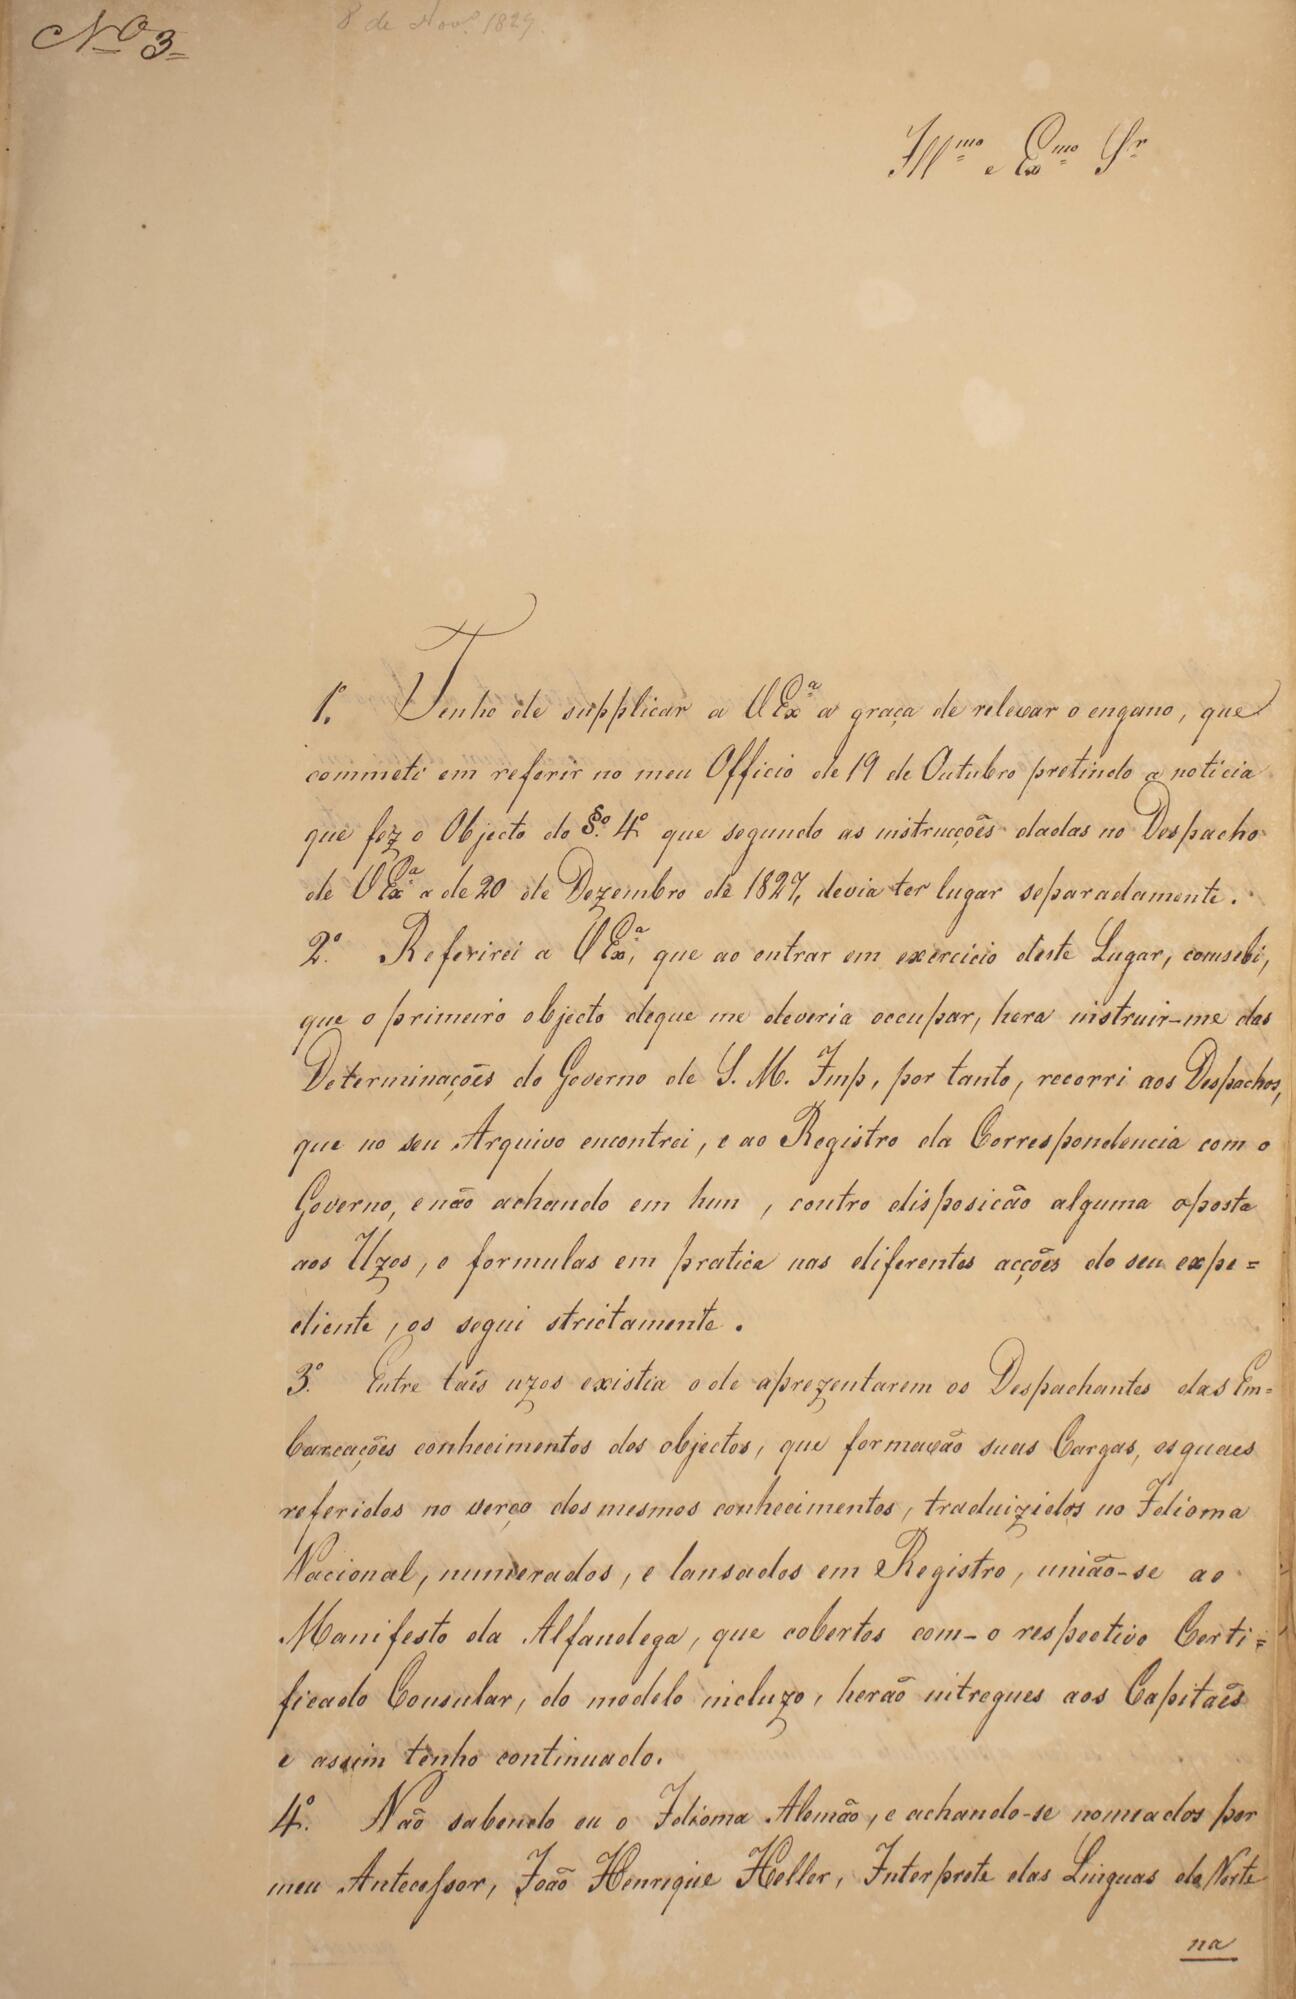 Nº 3
8 de Novº 1829.
Illmo e Exmo Sr
1º. Tenho de supplicar a V Exª a graça de relevar o engano, que
commeti em referir no meu Officio de 19 de Outubro pretindo a noticia
que fez o Objecto do §º 4º que segundo as instrucções dadas no Despacho
de V Exª a de 20 de Dezembro de 1827, devia ter lugar separadamente.
2º. Referirei a V Exª, que ao entrar em exercicio deste Lugar, comsebi,
que o primeiro objecto deque me deveria occupar, hera instruir-me das
Determinações do Governo de S. M. Imp, por tanto, recorri aos Despachos,
que no seu Arquivo encontrei, e ao Registro da Correspondencia com o
Governo, e não achando em hun, contro disposicão alguma oposta
aos Uzos, e formulas em pratica nas diferentes acções do seu expe=
diente, os segui strictamente.
3º. Entre taes uzos existia o de aprezentarem os Despachantes das Em=
barcações conhecimentos dos objectos, que formavão suas Cargas, os quaes
referidos no verço dos mesmos conhecimentos, traduizidos no Idioma
Nacional, numerados, e lansados em Registro, união-se ao
Manifesto da Alfandega, que cobertos com-o respectivo Certi=
ficado Consular, do modelo incluzo, herão intregues aos Capitaẽs
e assim tenho continuado.
4º. Não sabendo eu o Idioma Alemão, e achando-se nomeados por
meu Antecessor, João Henrique Heller, Interprete das Linguas do Norte
na